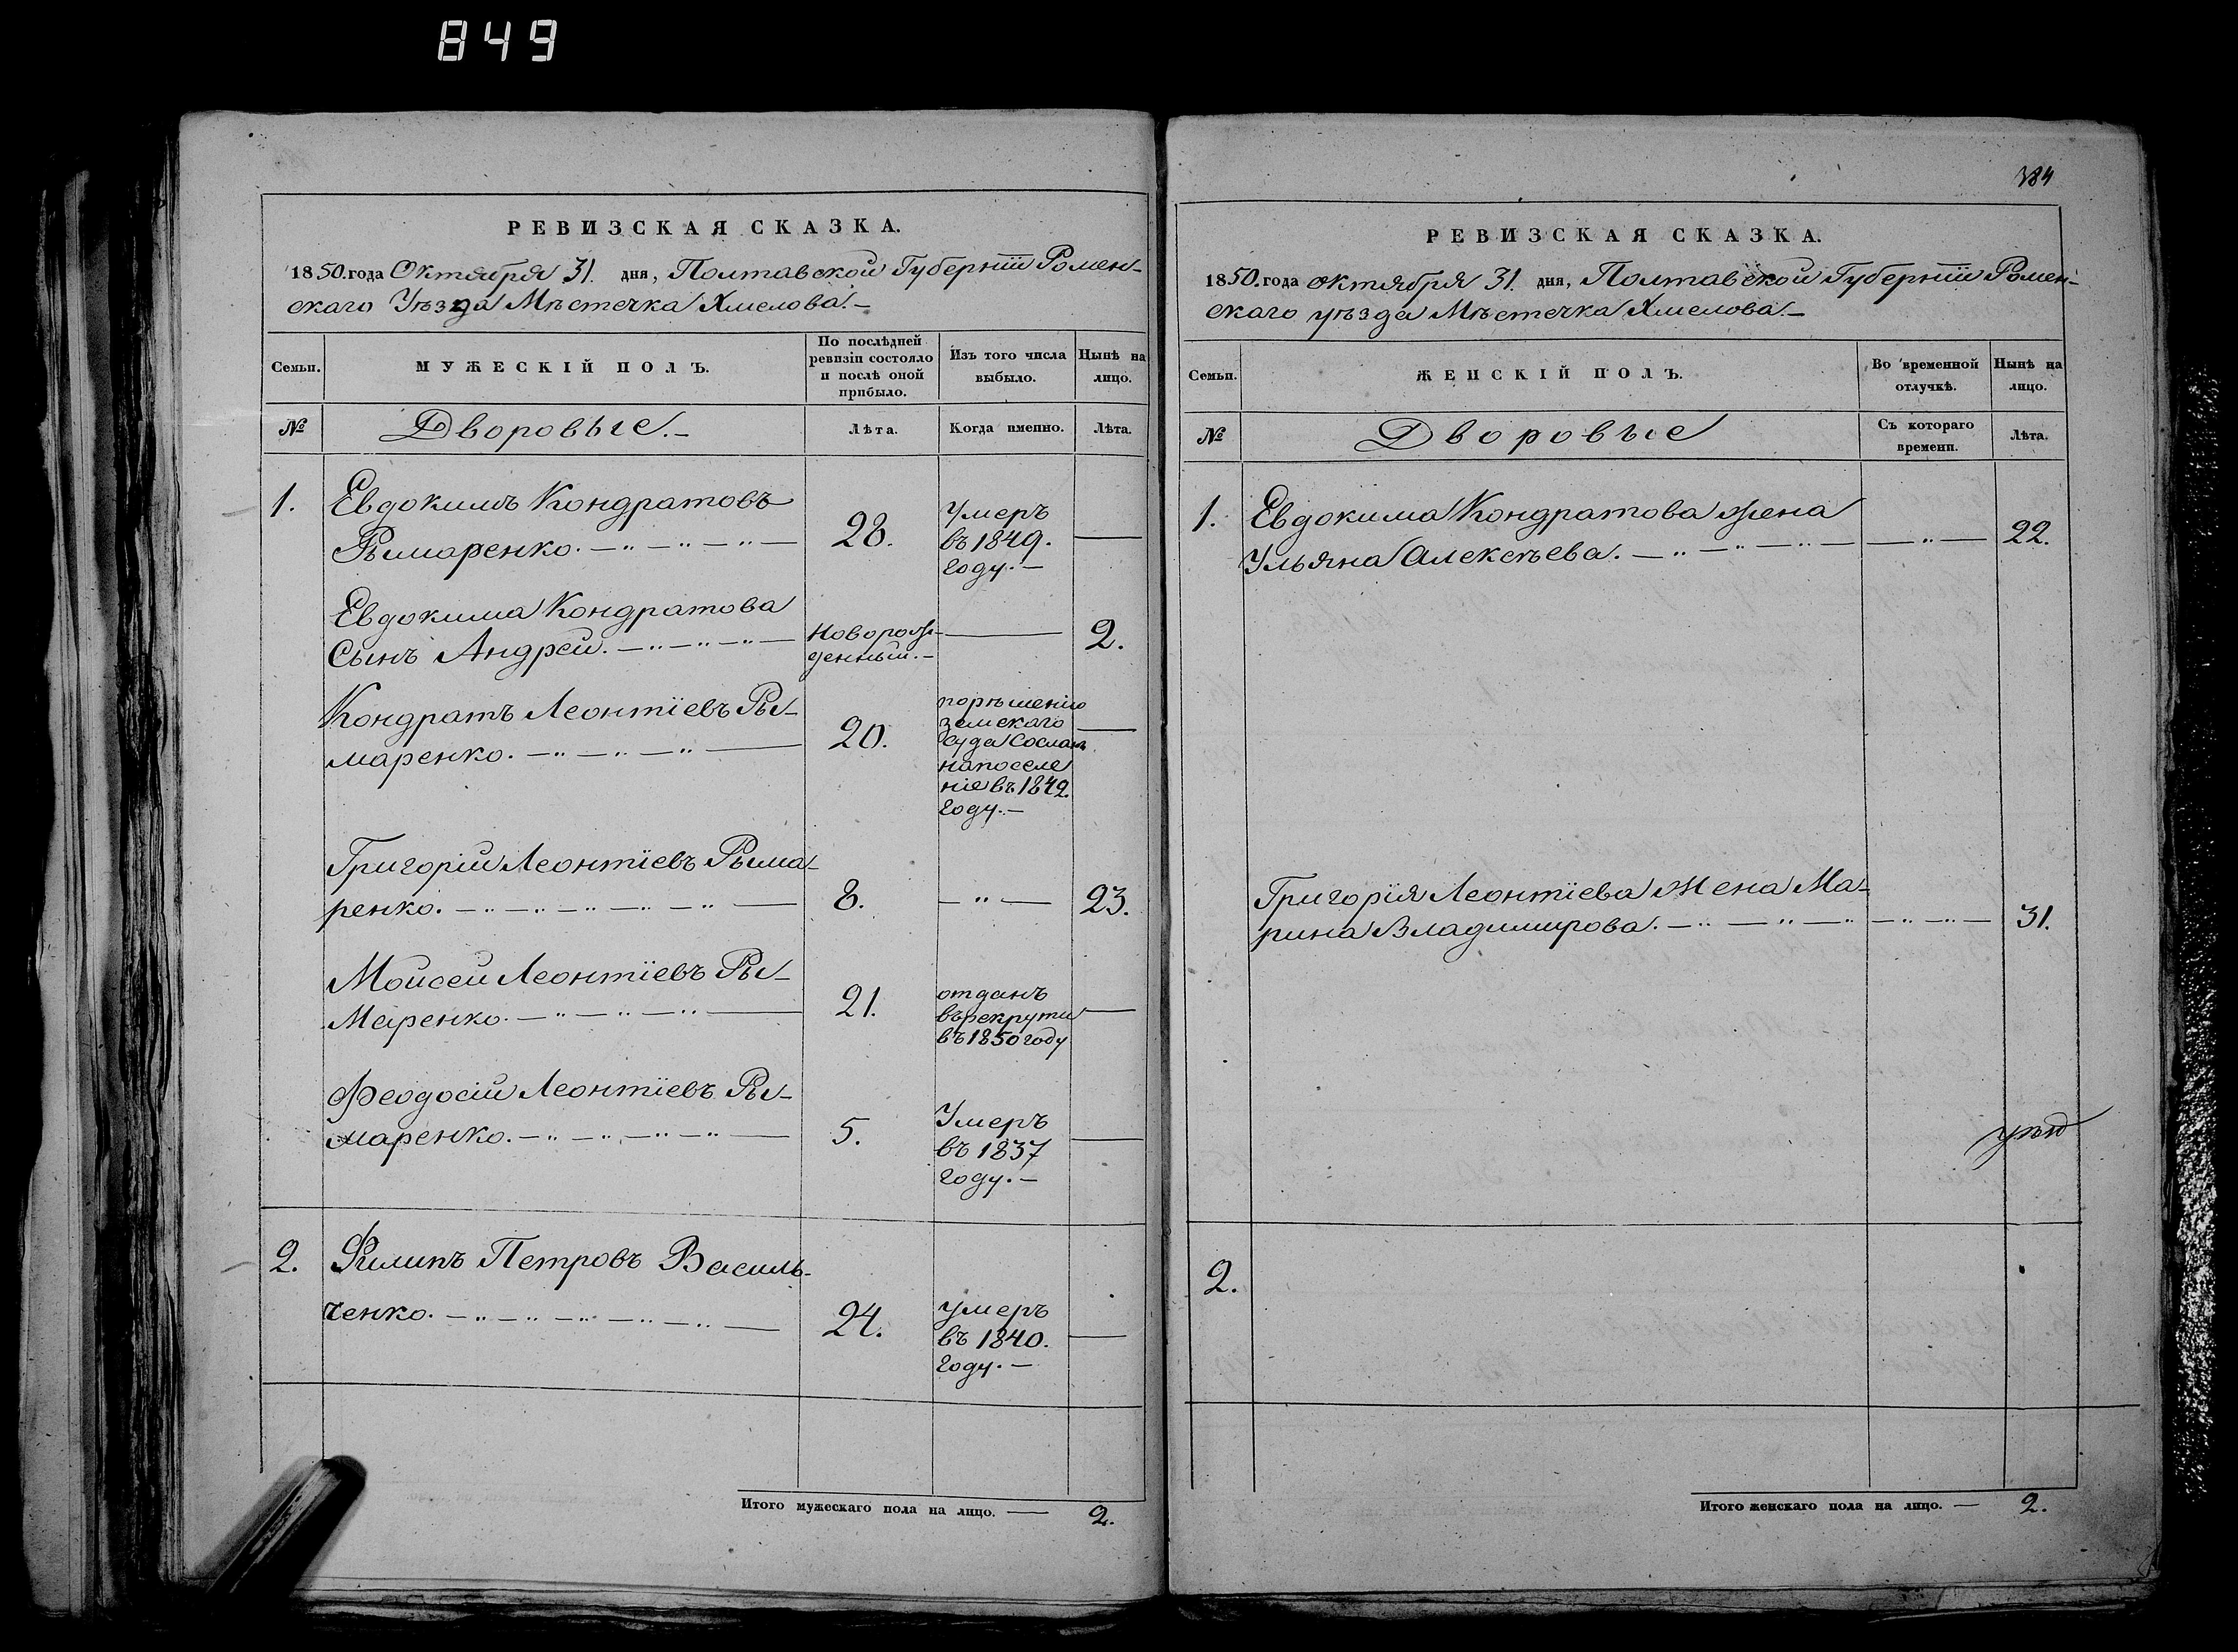 849
РЕВИЗСКАЯ СКАЗКА.
1850. года Октября 31. дня, Полтавской Губерніи Ромен-
скаго Уѣзда Мѣстечка Хмелова.—
Семьи.
МУЖЕСКІЙ ПОЛЪ.
По послѣдней
ревизіи состояло
и послѣ оной
прибыло.
Изъ того числа
выбыло.
Нынѣ на
лицо.
№
Дворовые.—
Лѣта.
Когда именно.
Лѣта.
1. Евдокимъ Кондратовъ
Рымаренко. 28.
Умеръ
въ 1849.
году.—
Евдокима Кондратова
Сынъ Андрей.
Новорож-
денный.—
2.
Кондратъ Леонтіевъ Ры-
маренко. 20.
порѣшенію
земскаго
суда Сосланъ
напоселе
ніе въ 1842.
году.—
Григорій Леонтіевъ Рыма-
ренко. 8. 23.
Моисей Леонтіевъ Ры-
маренко. 21.
отданъ
въ рекруты
въ 1850 году
Феодосій Леонтіевъ Ры-
маренко. 5.
Умеръ
въ 1837
году.—
2. Филипъ Петровъ Василь-
ченко. 24.
Умеръ
въ 1840.
году.—
Итого мужескаго пола на лицо. — 2.
384
РЕВИЗСКАЯ СКАЗКА.
1850. года октября 31. дня, Полтавской Губерніи Ромен-
скаго уѣзда Мѣстечка Хмелова.—
Семьи.
ЖЕНСКІЙ ПОЛЪ.
Во временной
отлучкѣ.
Нынѣ на
лицо.
№
Дворовые
Съ котораго
времени.
Лѣта.
1. Евдокима Кондратова жена
Ульяна Алексѣева. 22.
Григорія Леонтіева Жена Ма-
рина Владимирова. 31.
2.
Итого женскаго пола на лицо. — 2.